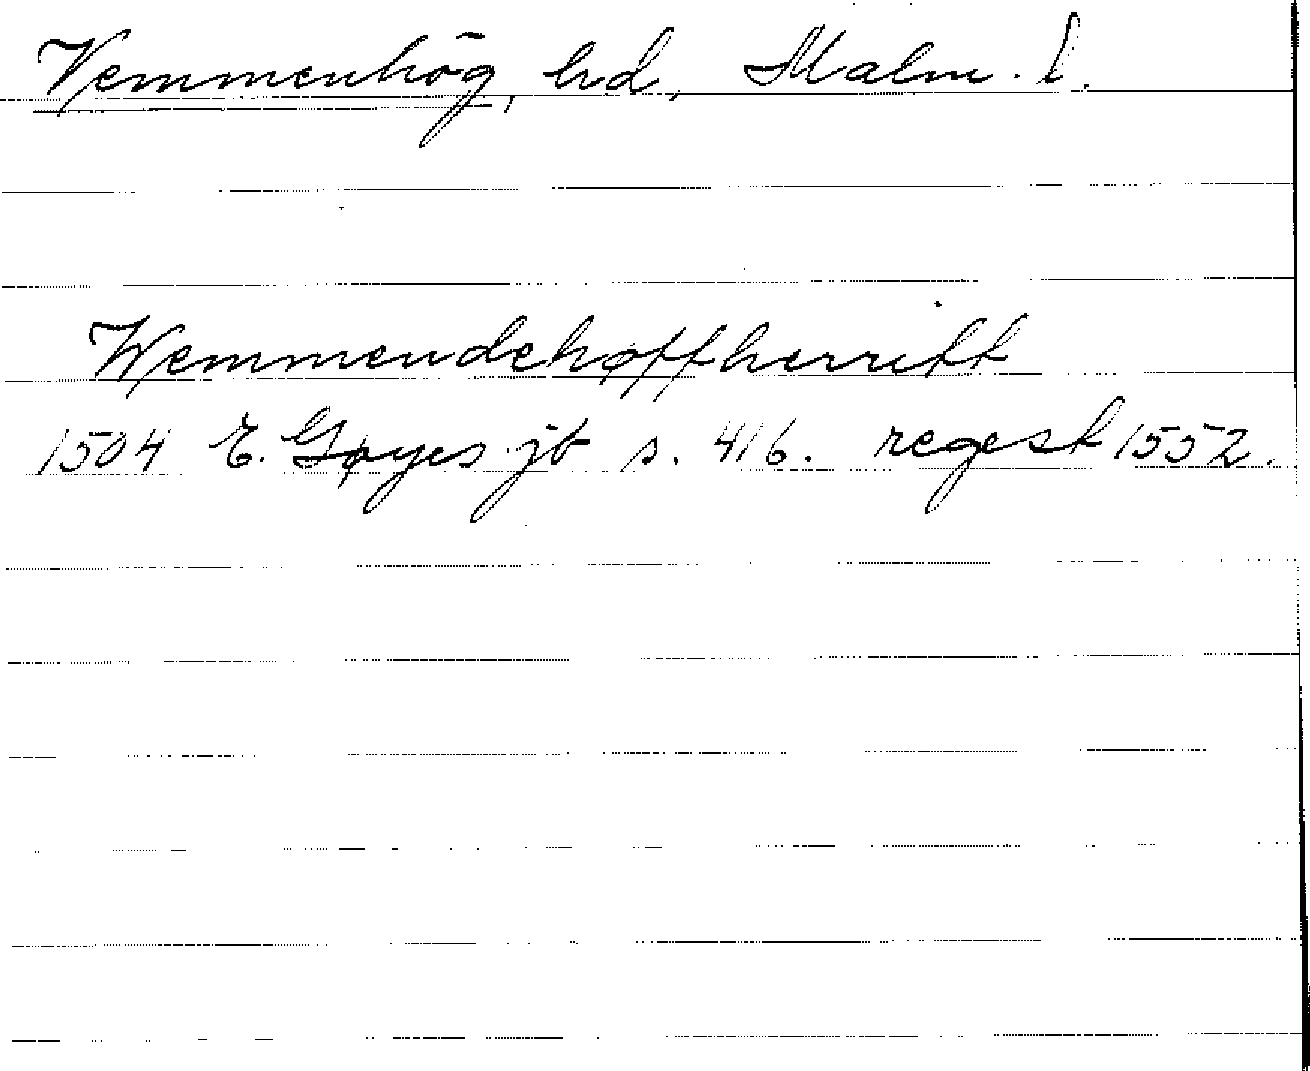 Vemmenhög, hd, Malm. l.
Wemmendehøffherritt
1504 E. Gøyes jb s. 416. regest 1552.